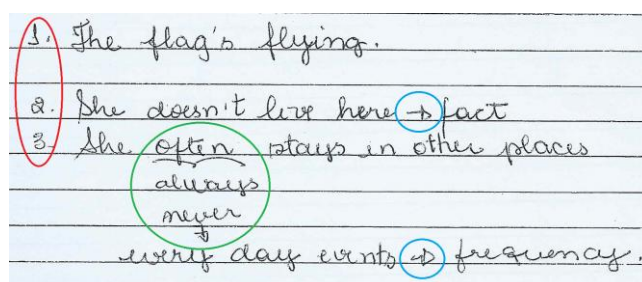 1. The flag's flying.
2. She doesn't live here → fact
3. She often stays in other places
always
never
↓
every day events → frequency.